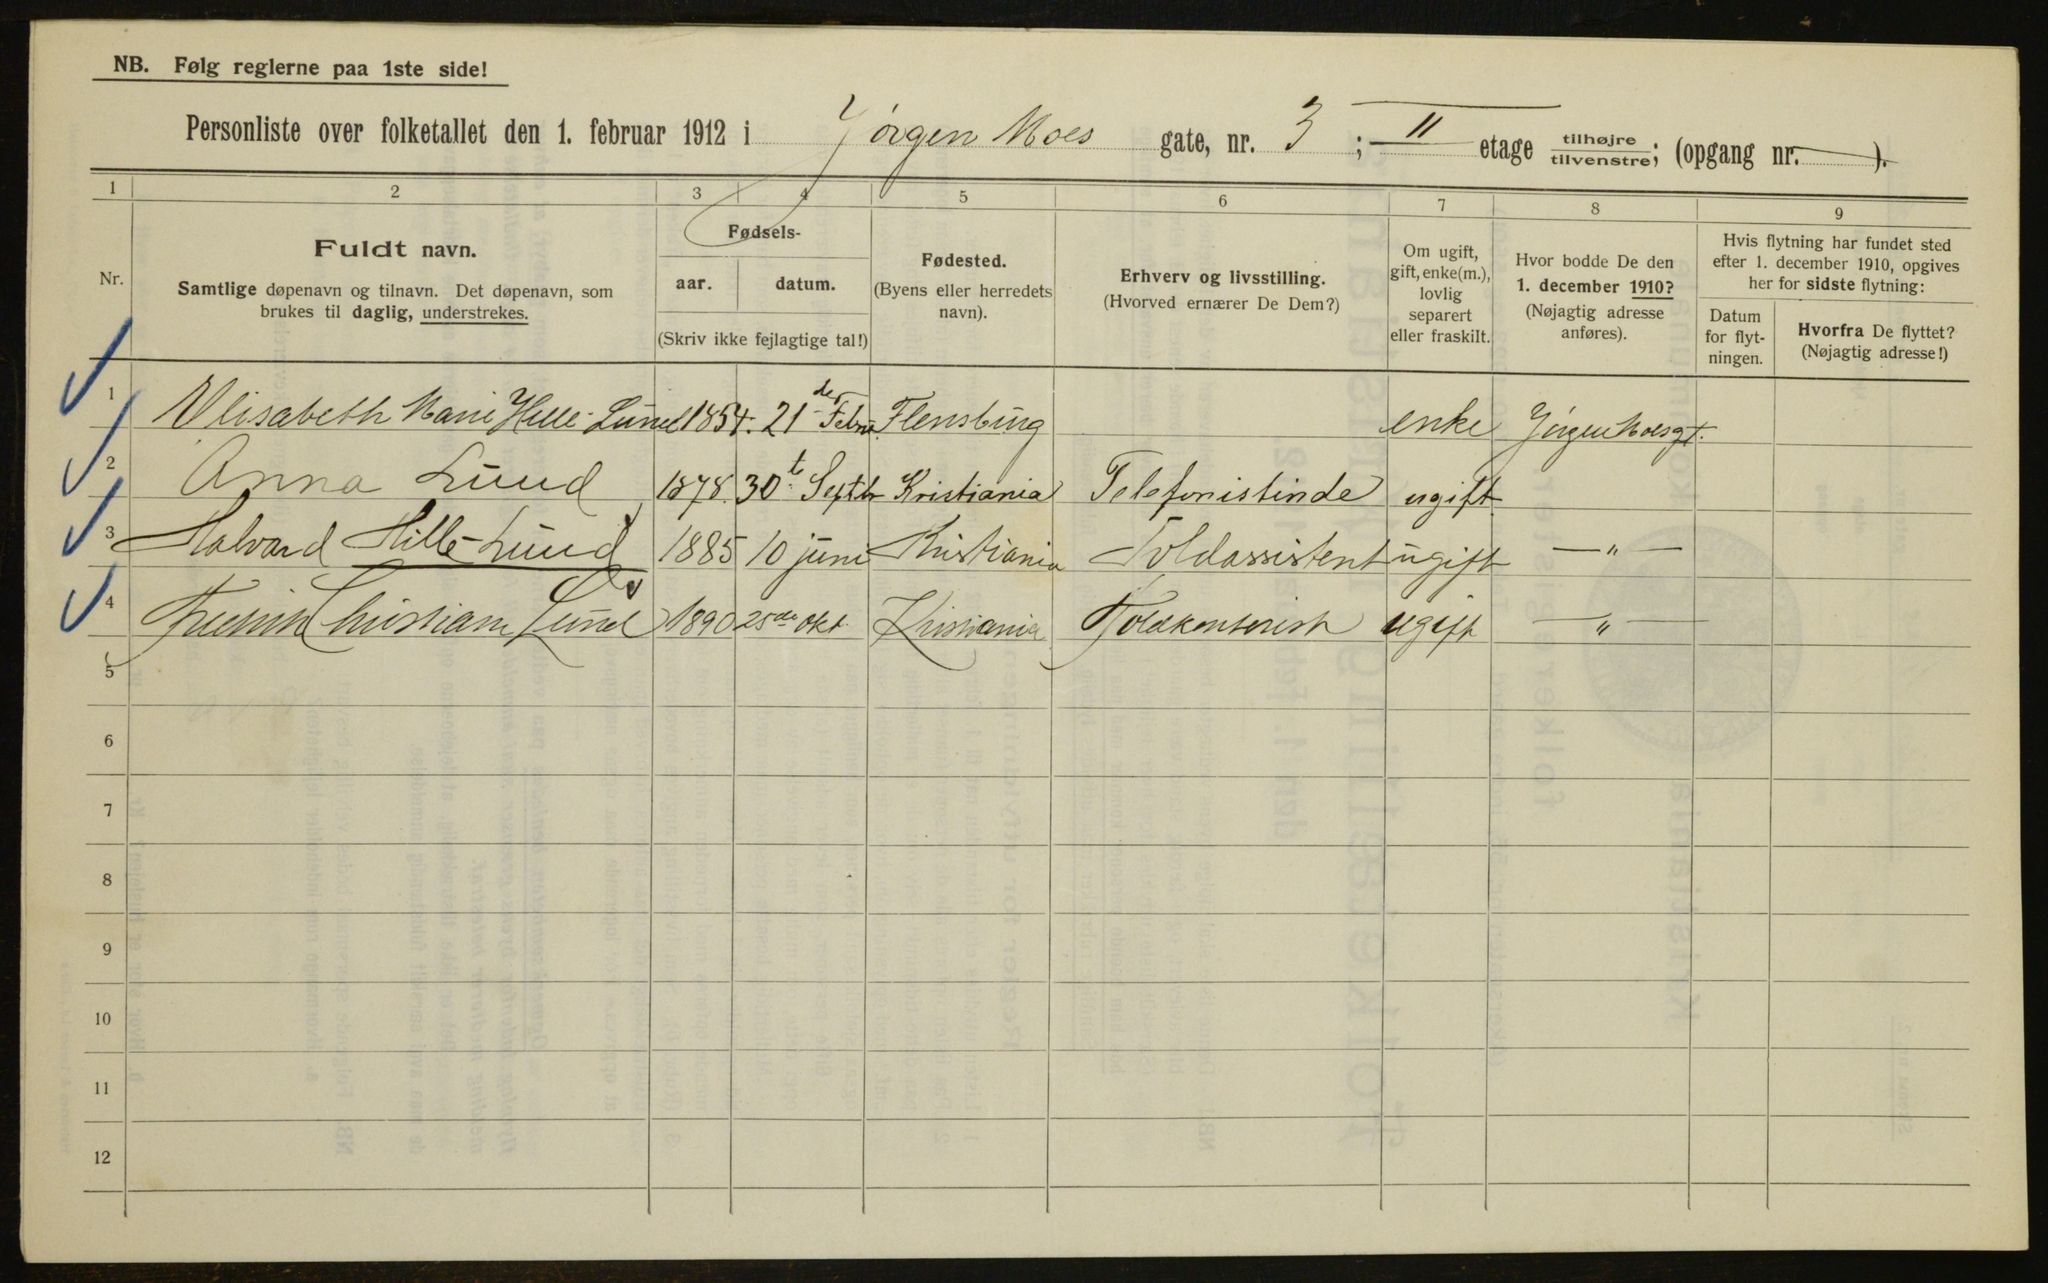 NB. Følg reglerne paa 1ste side!
Personliste over folketallet den 1. februar 1912 i Jørgen Moes gate, nr. 3 ; II etage tilhøjre tilvenstre; (opgang nr. — ).
1 2 3 4 5 6 7 8 9
Nr.
Fuldt navn.
Samtlige døpenavn og tilnavn. Det døpenavn, som
brukes til daglig, understrekes.
Fødsels-
aar. datum.
(Skriv ikke fejlagtige tal!)
Fødested.
(Byens eller herredets
navn).
Erhverv og livsstilling.
(Hvorved ernærer De Dem?)
Om ugift,
gift, enke(m.),
lovlig
separert
eller fraskilt.
Hvor bodde De den
1. december 1910?
(Nøjagtig adresse
anføres).
Hvis flytning har fundet sted
efter 1. december 1910, opgives
her for sidste flytning:
Datum
for flyt-
ningen.
Hvorfra De flyttet?
(Nøjagtig adresse!)
1 Elisabeth Marie Hille-Lund 1854. 21 de Febru. Flensburg enke Jørgen Moesgt.
2 Anna Lund 1878. 30t Septbr Kristiania Telefonistinde ugift
3 Halvard Hille-Lund 1885 10 juni Kristiania Toldassistent ugift — " —
4 Fredrik Christian Lund 1890 25de okt. Kristiania Toldkontorist ugift — " —
5
6
7
8
9
10
11
12